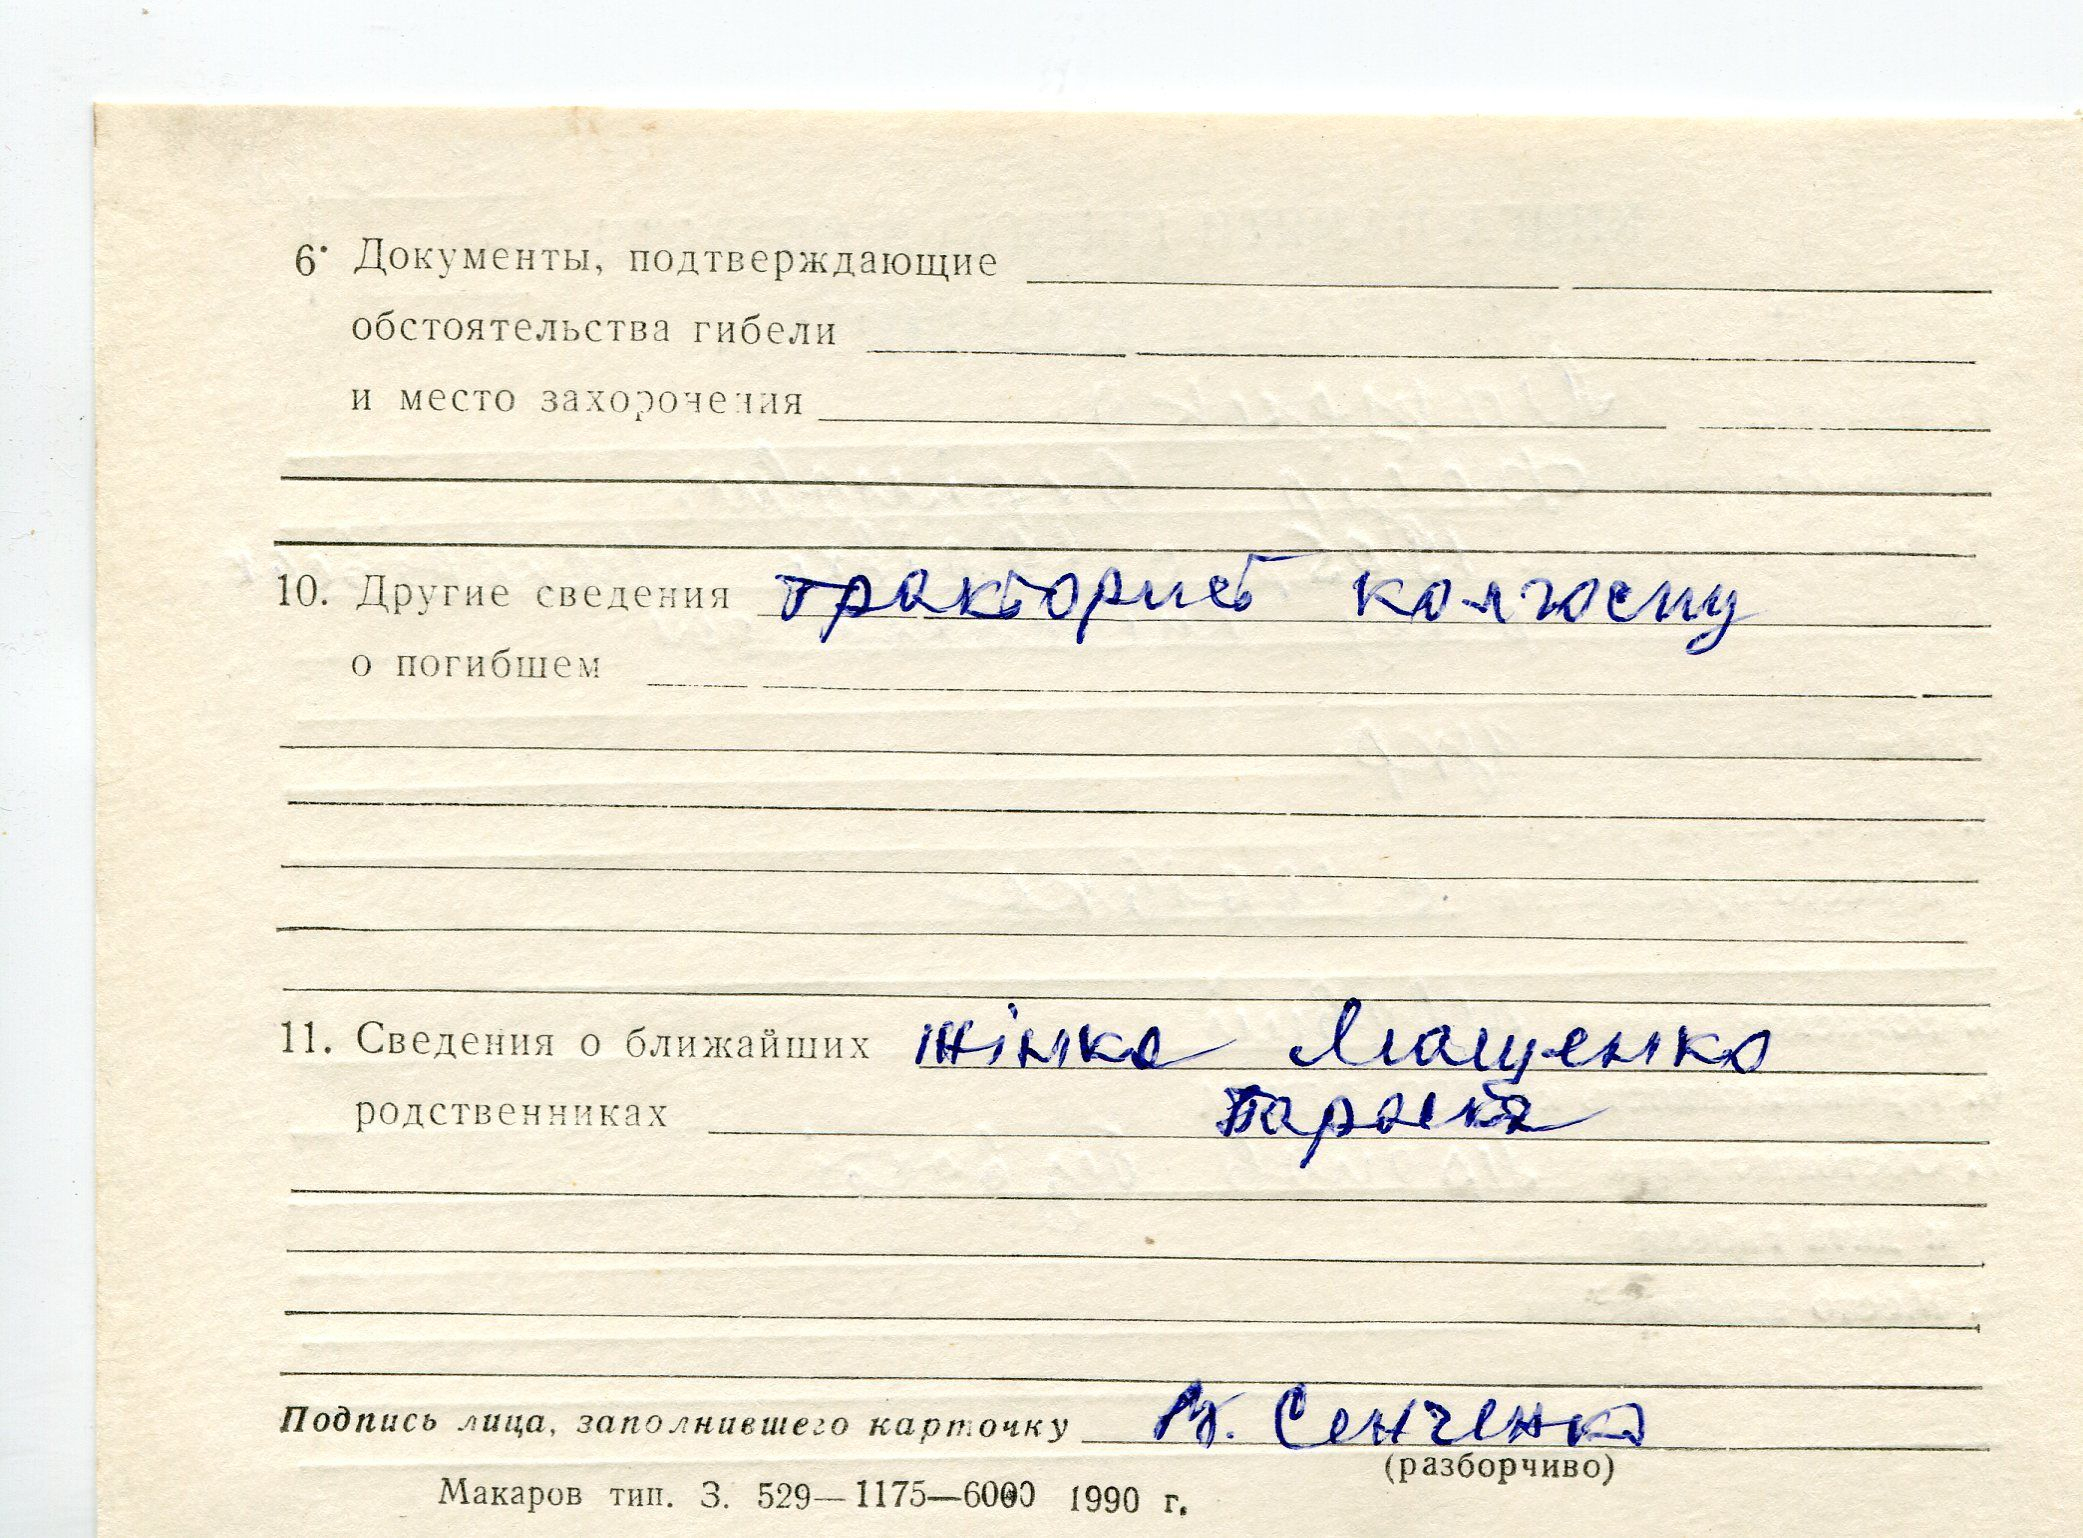 6. Документы, подтверждающие
обстоятельства гибели
и место захорочения
10. Другие сведения тракторист колгоспу
о погибшем
11. Сведения о ближайших жінка Мащенко
родственниках Параска
Подпись лица, заполнившего карточку В. Сенченко
(разборчиво)
Макаров тип. З. 529—1175—6000 1990 г.